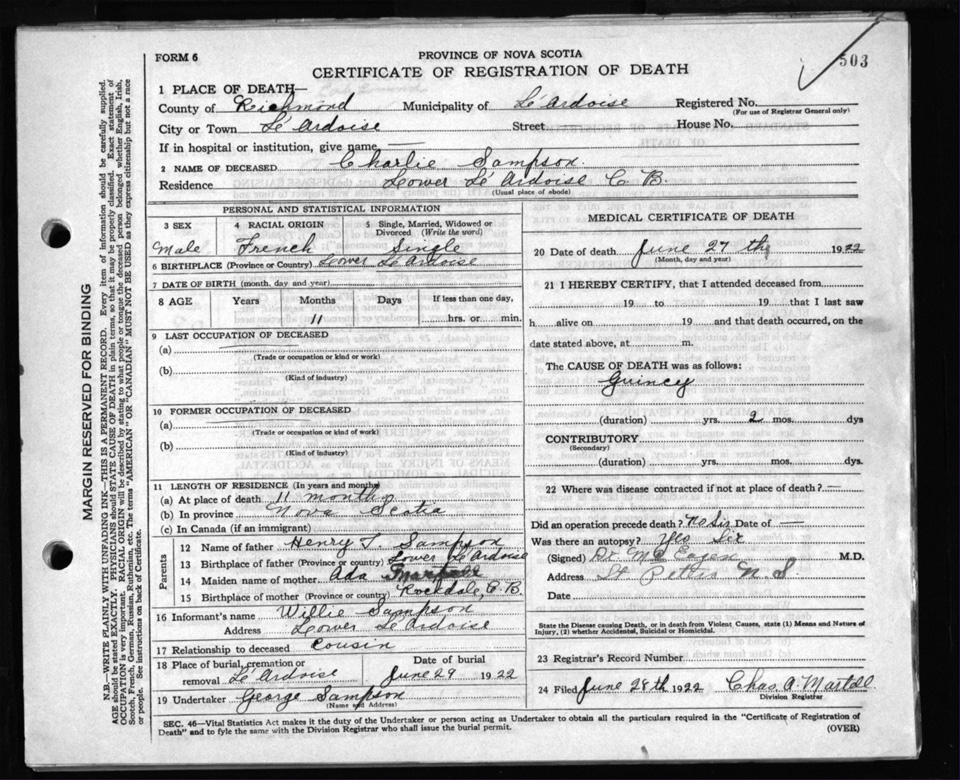 503
FORM 6
PROVINCE OF NOVA SCOTIA
CERTIFICATE OF REGISTRATION OF DEATH
1 PLACE OF DEATH—
County of Richmond Municipality of Lé Ardoise Registered No.
(For use of Registrar General only)
City or Town Lé Ardoise Street House No.
If in hospital or institution, give name —
2 NAME OF DECEASED Charlie Sampson
Residence Lower Lé Ardoise C. B.
(Usual place of abode)
PERSONAL AND STATISTICAL INFORMATION
3 SEX 4 RACIAL ORIGIN 5 Single, Married, Widowed or Divorced (Write the word)
Male French Single
6 BIRTHPLACE (Province or Country) Lower Lé Ardoise
7 DATE OF BIRTH (month, day and year)
8 AGE Years Months Days If less than one day,
11 hrs. or min.
9 LAST OCCUPATION OF DECEASED
(a)
(Trade or occupation or kind or work)
(b)
(Kind of industry)
10 FORMER OCCUPATION OF DECEASED
(a)
(Trade or occupation or kind of work)
(b)
(Kind of industry)
11 LENGTH OF RESIDENCE (In years and months)
(a) At place of death 11 months
(b) In province Nova Scotia
(c) In Canada (if an immigrant)
Parents
12 Name of father Henry T. Sampson
13 Birthplace of father (Province or country) Lower Lé Ardoise
14 Maiden name of mother Ada
15 Birthplace of mother (Province or country) Rockdale, C. B.
16 Informant's name Willie Sampson
Address Lower Lé Ardoise
17 Relationship to deceased Cousin
18 Place of burial, cremation or removal Lé Ardoise Date of burial June 29 1922
19 Undertaker George Sampson
(Name and Address)
MEDICAL CERTIFICATE OF DEATH
20 Date of death June 27 th 1922
(Month, day and year)
21 I HEREBY CERTIFY, that I attended deceased from
19 to 19 that I last saw
h alive on 19 and that death occurred, on the
date stated above, at m.
The CAUSE OF DEATH was as follows:
Quincey
(duration) yrs. 2 mos. dys
CONTRIBUTORY
(Secondary)
(duration) yrs. mos. dys.
22 Where was disease contracted if not at place of death? —
Did an operation precede death? No Sir Date of —
Was there an autopsy? Yes Sir
(Signed) Dr. M.D.
Address St Peters N. S
Date
State the Disease causing Death, or in death from Violent Causes, state (1) Means and Nature of
Injury, (2) whether Accidental, Suicidal or Homicidal.
23 Registrar's Record Number
24 Filed June 28th 1922 Chas. A. Martell
Division Registrar
SEC. 46—Vital Statistics Act makes it the duty of the Undertaker or person acting as Undertaker to obtain all the particulars required in the "Certificate of Registration of
Death" and to fyle the same with the Division Registrar who shall issue the burial permit.
(OVER)
MARGIN RESERVED FOR BINDING
N.B.—WRITE PLAINLY WITH UNFADING INK—THIS IS A PERMANENT RECORD. Every item of information should be carefully supplied.
AGE should be stated EXACTLY. PHYSICIANS should STATE CAUSE OF DEATH in plain terms, so that it may be properly classified. Exact statement of
OCCUPATION is very important. RACIAL ORIGIN will be described by stating to what people or tongue the deceased person belonged whether English, Irish,
Scotch, French, German, Russian, Ruthenian, etc. The terms "AMERICAN" OR "CANADIAN" MUST NOT BE USED as they express citizenship but not a race
or people. See instructions on back of Certificate.